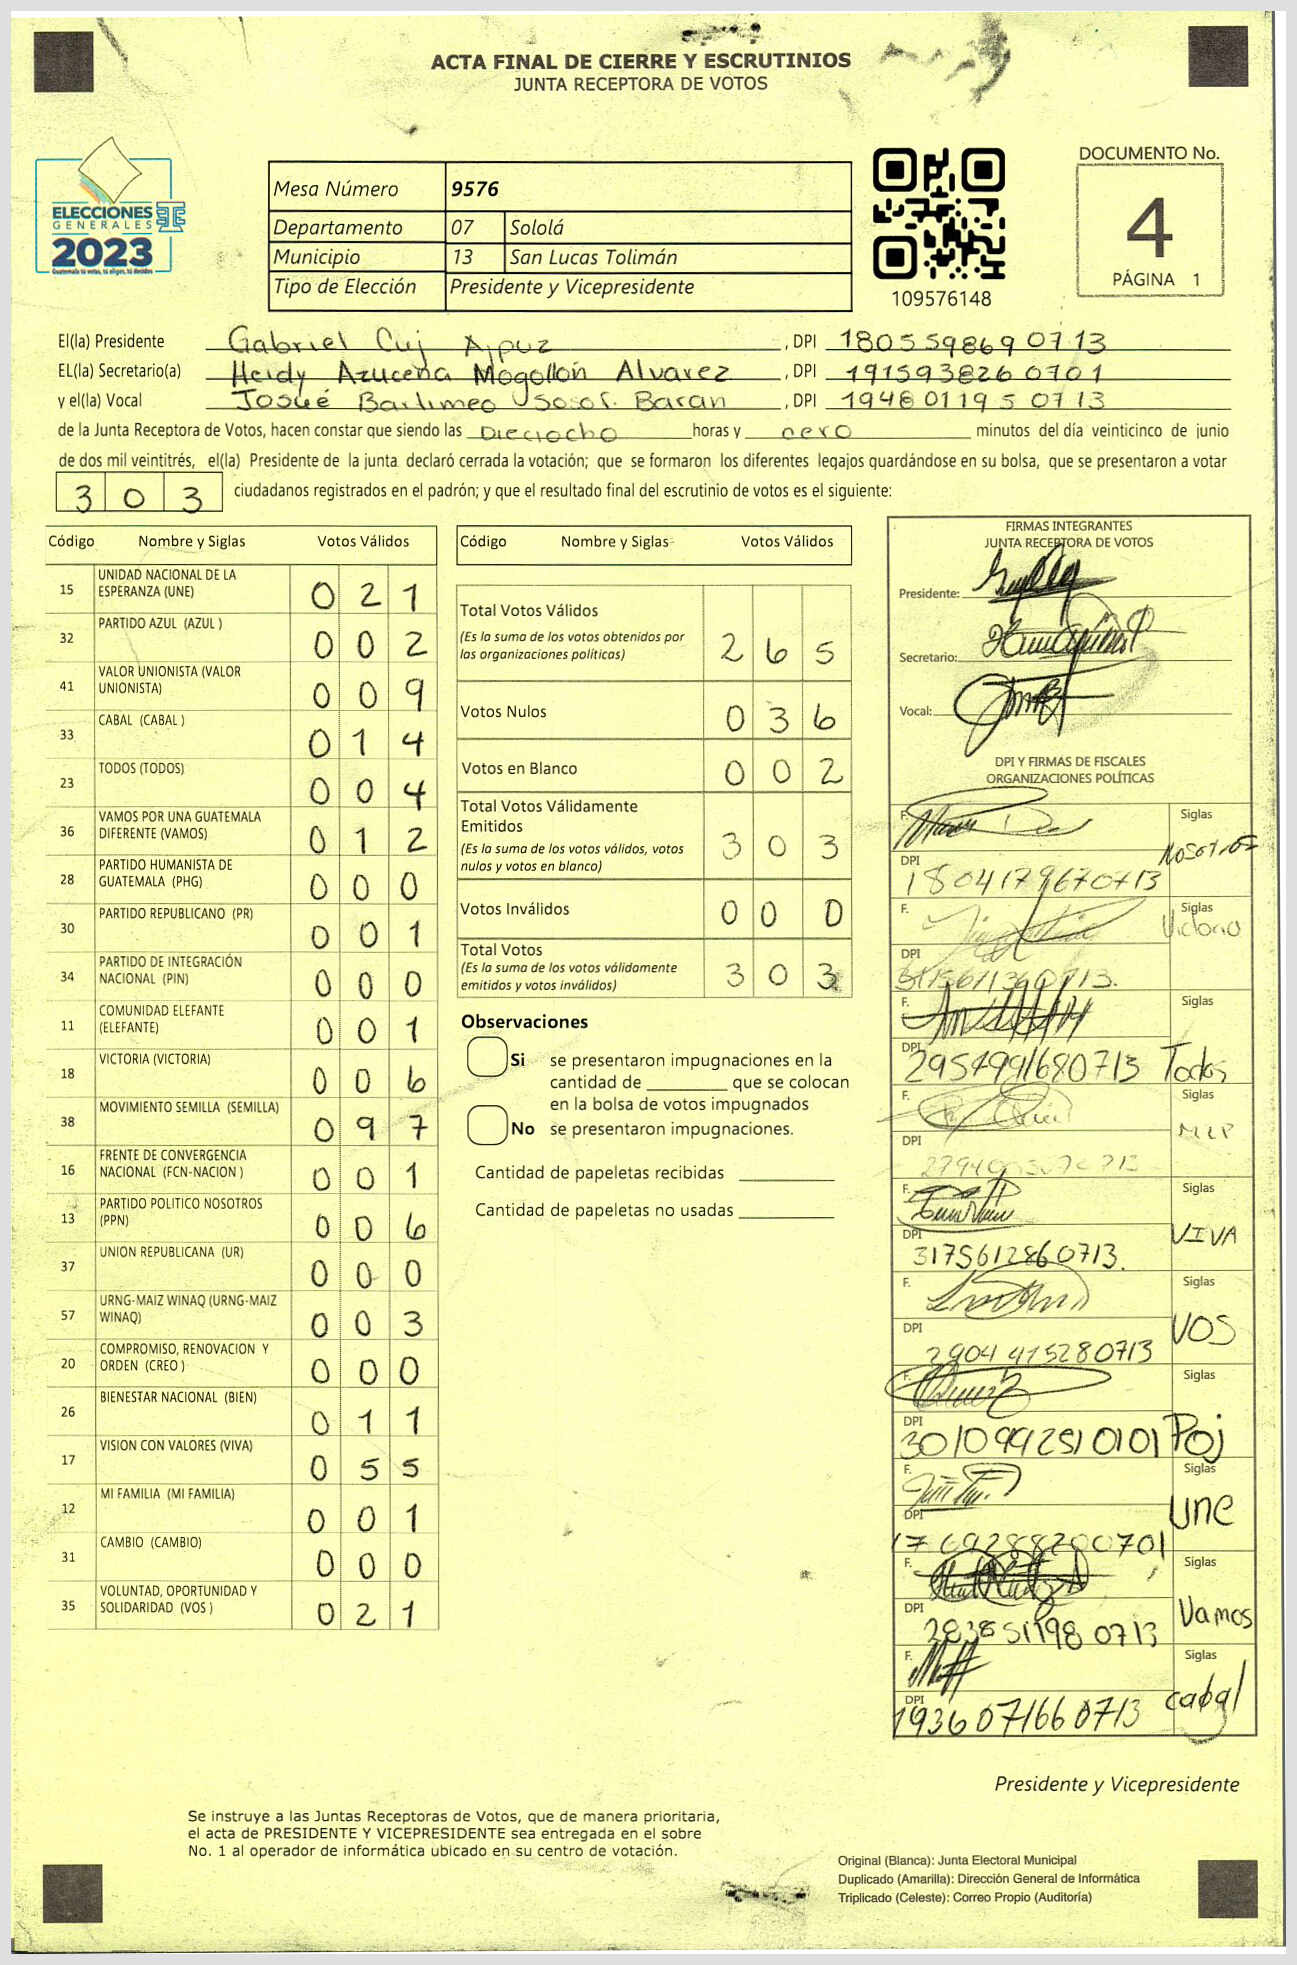 ACTA FINAL DE CIERRE Y ESCRUTINIOS
JUNTA RECEPTORA DE VOTOS
ELECCIONES
GENERALES
2023
Guatemala tú votas, tú eliges, tú decides
Mesa Número 9576
Departamento 07 Sololá
Municipio 13 San Lucas Tolimán
Tipo de Elección Presidente y Vicepresidente
109576148
DOCUMENTO No.
4
PÁGINA 1
El(la) Presidente Gabriel Cuj Ajpuz, DPI 180559869 0713
EL(la) Secretario(a) Heidy Azucena Mogollón Alvarez, DPI 191593826 0701
y el(la) Vocal Josué Bartimeo Baran, DPI 1948 0119 5 0713
de la Junta Receptora de Votos, hacen constar que siendo las Dieciocho horas y cero minutos del día veinticinco de junio
de dos mil veintitrés, el(la) Presidente de la junta declaró cerrada la votación; que se formaron los diferentes legajos guardándose en su bolsa, que se presentaron a votar
303 ciudadanos registrados en el padrón; y que el resultado final del escrutinio de votos es el siguiente:
Código Nombre y Siglas Votos Válidos
15 UNIDAD NACIONAL DE LA ESPERANZA (UNE) 021
32 PARTIDO AZUL (AZUL ) 002
41 VALOR UNIONISTA (VALOR UNIONISTA) 009
33 CABAL (CABAL ) 014
23 TODOS (TODOS) 004
36 VAMOS POR UNA GUATEMALA DIFERENTE (VAMOS) 012
28 PARTIDO HUMANISTA DE GUATEMALA (PHG) 000
30 PARTIDO REPUBLICANO (PR) 001
34 PARTIDO DE INTEGRACIÓN NACIONAL (PIN) 000
11 COMUNIDAD ELEFANTE (ELEFANTE) 001
18 VICTORIA (VICTORIA) 006
38 MOVIMIENTO SEMILLA (SEMILLA) 097
16 FRENTE DE CONVERGENCIA NACIONAL (FCN-NACION ) 001
13 PARTIDO POLITICO NOSOTROS (PPN) 006
37 UNION REPUBLICANA (UR) 000
57 URNG-MAIZ WINAQ (URNG-MAIZ WINAQ) 003
20 COMPROMISO, RENOVACION Y ORDEN (CREO ) 000
26 BIENESTAR NACIONAL (BIEN) 011
17 VISION CON VALORES (VIVA) 055
12 MI FAMILIA (MI FAMILIA) 001
31 CAMBIO (CAMBIO) 000
35 VOLUNTAD, OPORTUNIDAD Y SOLIDARIDAD (VOS ) 021
Código Nombre y Siglas Votos Válidos
Total Votos Válidos 265
(Es la suma de los votos obtenidos por
las organizaciones políticas)
Votos Nulos 036
Votos en Blanco 002
Total Votos Válidamente
Emitidos 303
(Es la suma de los votos válidos, votos
nulos y votos en blanco)
Votos Inválidos 000
Total Votos 303
(Es la suma de los votos válidamente
emitidos y votos inválidos)
Observaciones
Si se presentaron impugnaciones en la
cantidad de ________ que se colocan
en la bolsa de votos impugnados
No se presentaron impugnaciones.
Cantidad de papeletas recibidas
Cantidad de papeletas no usadas
FIRMAS INTEGRANTES
JUNTA RECEPTORA DE VOTOS
Presidente:
Secretario:
Vocal:
DPI Y FIRMAS DE FISCALES
ORGANIZACIONES POLÍTICAS
F. Siglas
DPI 1804179670713 Nosotros
F. Siglas Victoria
DPI
F. Siglas
DPI 2954991680713 Todos
F. Siglas MLP
DPI
F. Siglas
DPI 3175612860713. VIVA
F. Siglas
DPI 2904 415280713 VOS
F. Siglas
DPI 3010994251 0101 Poj
F. Siglas
DPI 17 69288200701 une
F. Siglas
DPI 283851198 0713 Vamos
F. Siglas
DPI 1936 071660713 cabal
Presidente y Vicepresidente
Se instruye a las Juntas Receptoras de Votos, que de manera prioritaria,
el acta de PRESIDENTE Y VICEPRESIDENTE sea entregada en el sobre
No. 1 al operador de informática ubicado en su centro de votación.
Original (Blanca): Junta Electoral Municipal
Duplicado (Amarilla): Dirección General de Informática
Triplicado (Celeste): Correo Propio (Auditoría)